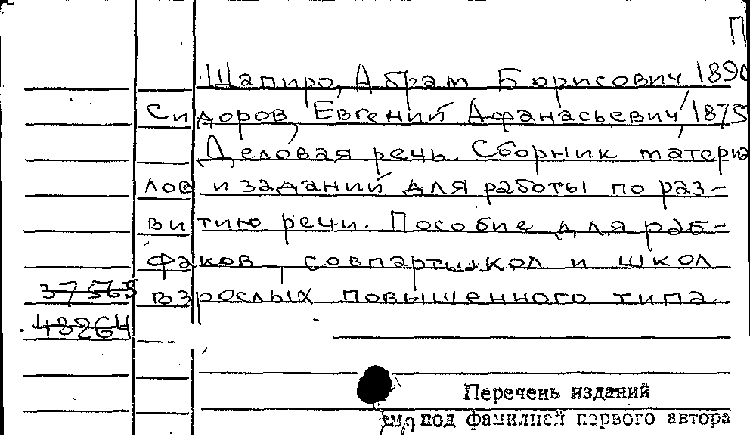 П
Шапиро, Абрам Борисович, 1890
Сидоров, Евгений Афанасьевич, 1875
Деловая речь. Сборник материа
лов и заданий для работы по раз-
витию речи. Пособие для раб-
факов, совпартшкол и школ
37565 взрослых повышенного типа
48264
Перечень изданий
см. под фамилией первого автора